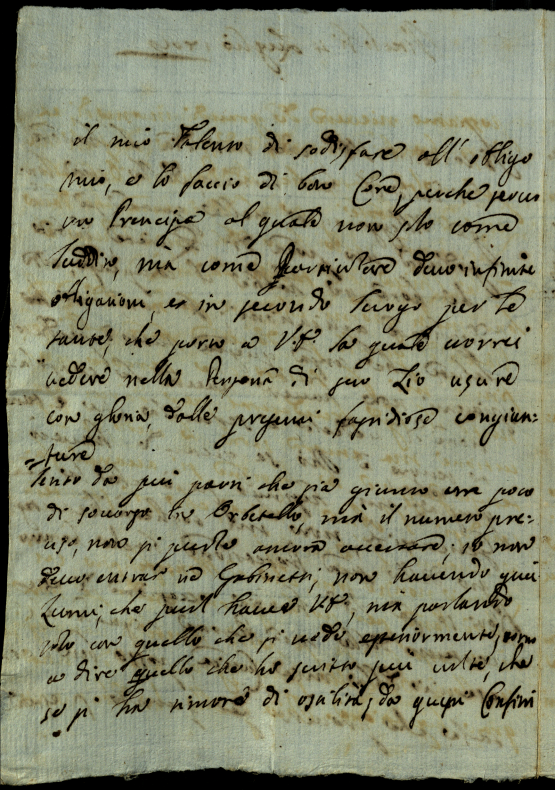 il mio talento di sodisfare all' obligo
mio, e lo faccio di bon Core, perche
un Principe al quale non solo come
suddito, ma come particulare devo infinite
obligationi, et in secondo luogo per le
tante, che porto a V.S. la quale vorrei
vedere nella Persona di suo Zio uscire
con gloria, dalle presenti fastidiose congiun=
=ture
Sento da più parti che sia giunto un poco
di soccorso in Orbetello, mà il numero pre=
ciso, non si puole ancora accertare; io non
devo entrar ne Gabinetti, non havendo quei
Lumi, che può havere V.S., mà parlando
solo con quello che si vede esteriormente, torno
a dire quello che ho scritto più volte, che
se si ha timore di ostilità, da questi Confini